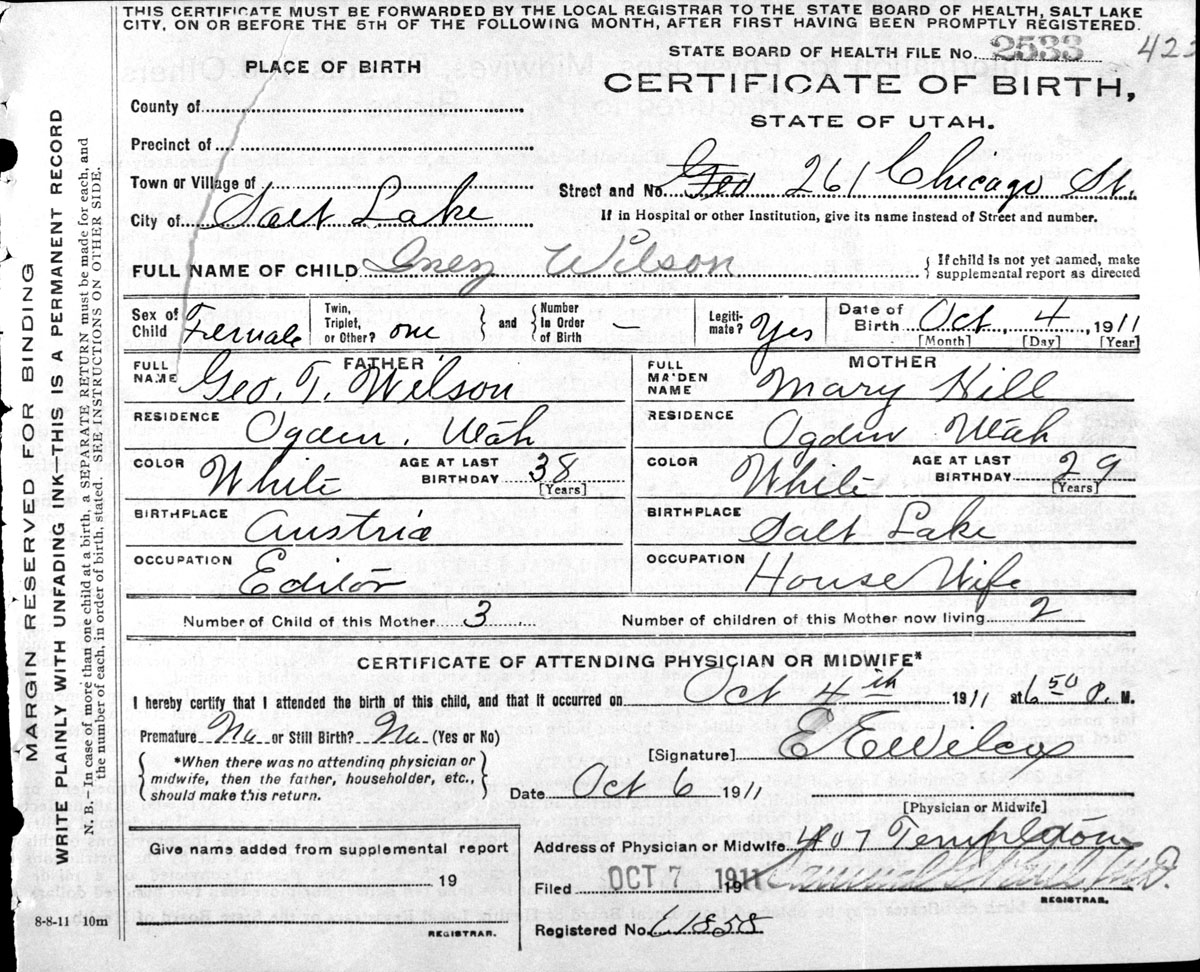 THIS CERTIFICATE MUST BE FORWARDED BY THE LOCAL REGISTRAR TO THE STATE BOARD OF HEALTH, SALT LAKE
CITY, ON OR BEFORE THE 5TH OF THE FOLLOWING MONTH, AFTER FIRST HAVING BEEN PROMPTLY REGISTERED.
STATE BOARD OF HEALTH FILE No. 2533 423
PLACE OF BIRTH
CERTIFICATE OF BIRTH,
STATE OF UTAH.
County of
Precinct of
Town or Village of
Street and No. 261 Chicago St.
City of Salt Lake
If in Hospital or other Institution, give its name instead of Street and number.
FULL NAME OF CHILD Inez Wilson
{ If child is not yet named, make
supplemental report as directed
Sex of Child Female
Twin, Triplet, or Other? one } and { Number In Order of Birth —
Legiti-mate? Yes
Date of Birth Oct, 4, 1911
[Month] [Day] [Year]
FATHER
FULL NAME Geo. T. Wilson
RESIDENCE Ogden, Utah
COLOR White AGE AT LAST BIRTHDAY 38 [Years]
BIRTHPLACE Austria
OCCUPATION Editor
MOTHER
FULL MAIDEN NAME Mary Hill
RESIDENCE Ogden Utah
COLOR White AGE AT LAST BIRTHDAY 29 [Years]
BIRTHPLACE Salt Lake
OCCUPATION House Wife
Number of Child of this Mother 3 Number of children of this Mother now living 2
CERTIFICATE OF ATTENDING PHYSICIAN OR MIDWIFE*
I hereby certify that I attended the birth of this child, and that it occurred on Oct 4th 1911 at 6 50 P. M.
Premature No or Still Birth? No (Yes or No)
[Signature] E E Wilcox
{ *When there was no attending physician or
midwife, then the father, householder, etc.,
should make this return. }
Date Oct 6 1911
[Physician or Midwife]
Give name added from supplemental report
19
REGISTRAR.
Address of Physician or Midwife 407 Templeton
Filed OCT 7 1911 19
REGISTRAR.
Registered No. 1858
8-8-11 10m
MARGIN RESERVED FOR BINDING
WRITE PLAINLY WITH UNFADING INK-THIS IS A PERMANENT RECORD
N. B.- In case of more than one child at a birth, a SEPARATE RETURN must be made for each, and
the number of each, in order of birth, stated. SEE INSTRUCTIONS ON OTHER SIDE.